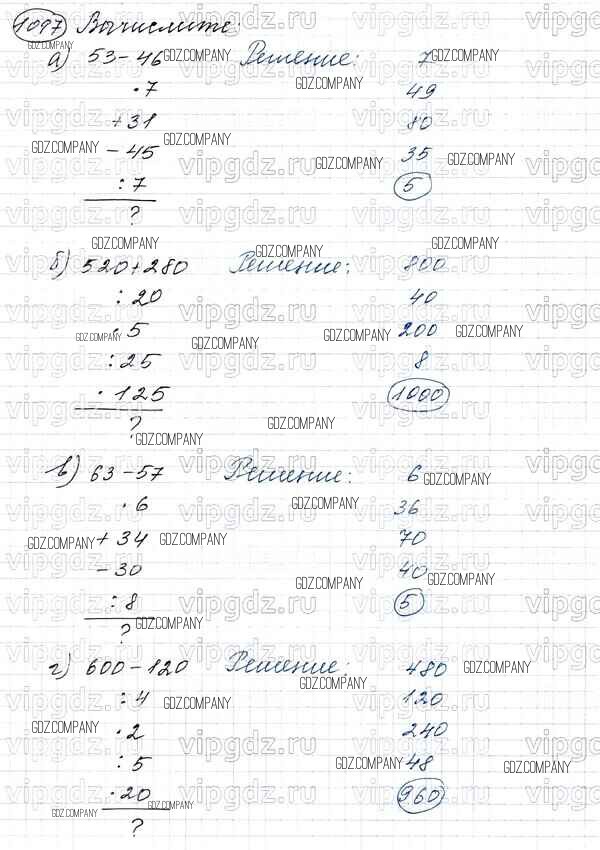 1097 Вычислите:
а) 53-46 Решение: 7
·7 49
+31 80
-45 35
:7 5
?
б) 520+280 Решение: 800
:20 40
·5 200
:25 8
·125 1000
?
в) 63-57 Решение: 6
·6 36
+34 70
-30 40
:8 5
?
г) 600-120 Решение: 480
:4 120
·2 240
:5 48
·20 960
?